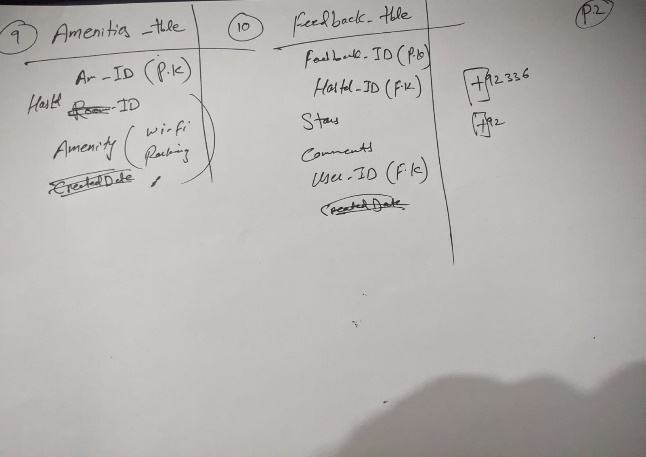 9 Amenities_tble
Am-ID (P.K)
Hostel Room-ID
Amenity (wi-fi
Parking
Created Date
10 Feedback_tble
Feedback-ID (P.K)
Hostel-ID (F.K)
Stars
Comments
User-ID (F.K)
Created Date
+92336
+92
P.2